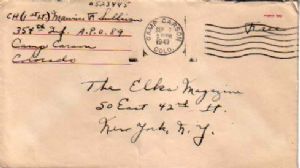 0523445
CH (1st Lt) Maurice F. Sullivan
354th Inf. A.P.O. 89
Camp Carson
Colorado
CAMP CARSON
SEP
1943
COLO.
Free
The Elks Magazine
50 East 42nd St.
New York, N.Y.